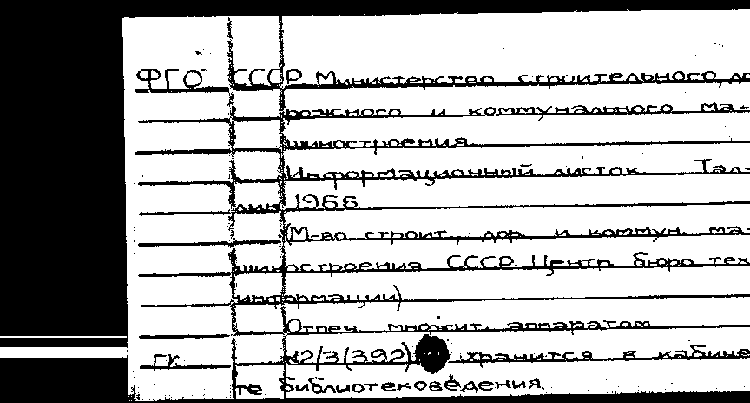 ФГО СССР Министерство строительного, до
рожного и коммунального ма-
шиностроения.
Информационный листок. Тал-
лин 1966
(М-во строит., дор. и коммун. ма-
шиностроения СССР. Центр. бюро тех
информации)
Отпеч. множит. аппаратом
ГК №2/3(392) хранится в кабине
те библиотековедения